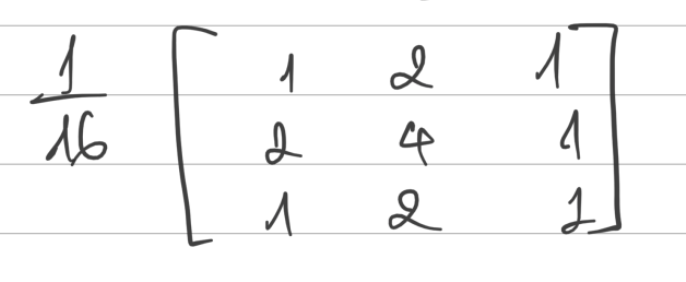 1/16 [ 1 2 1
2 4 1
1 2 1 ]